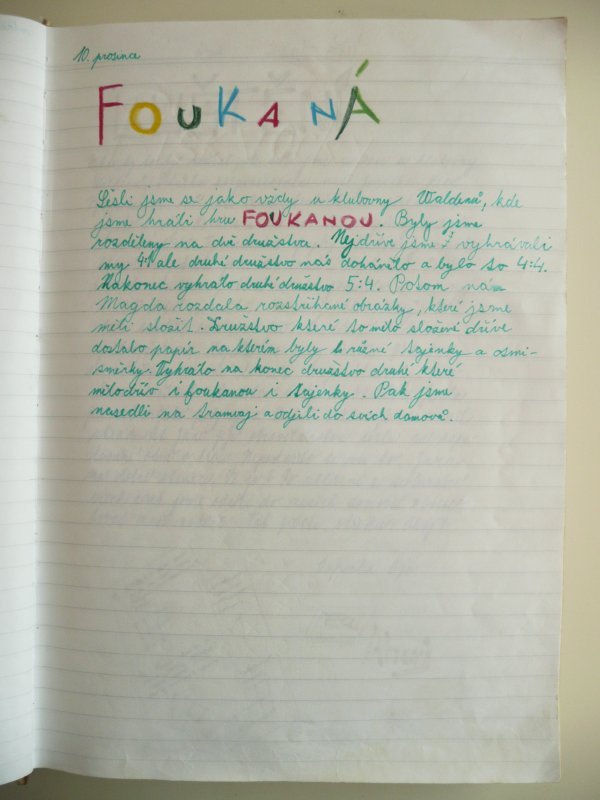 10. prosince
FOUKANÁ
Sešli jsme se jako vždy u klubovny Waldenů, kde
jsme hráli hru FOUKANOU. Byly jsme
rozděleny na dvě družstva. Nejdříve jsme vyhrávali
my 4:1 ale druhé družstvo nás dohánělo a bylo to 4:4.
Nakonec vyhrálo druhé družstvo 5:4. Potom nám
Magda rozdala rozstříhané obrázky, které jsme
měli složit. Družstvo které to mělo složené dříve
dostalo papír na kterém byly různé tajenky a osmi-
směrky. Vyhrálo na konec družstvo druhé které
mělo dřív i foukanou i tajenky. Pak jsme
nasedli na tramvaj a odjeli do svích domovů.